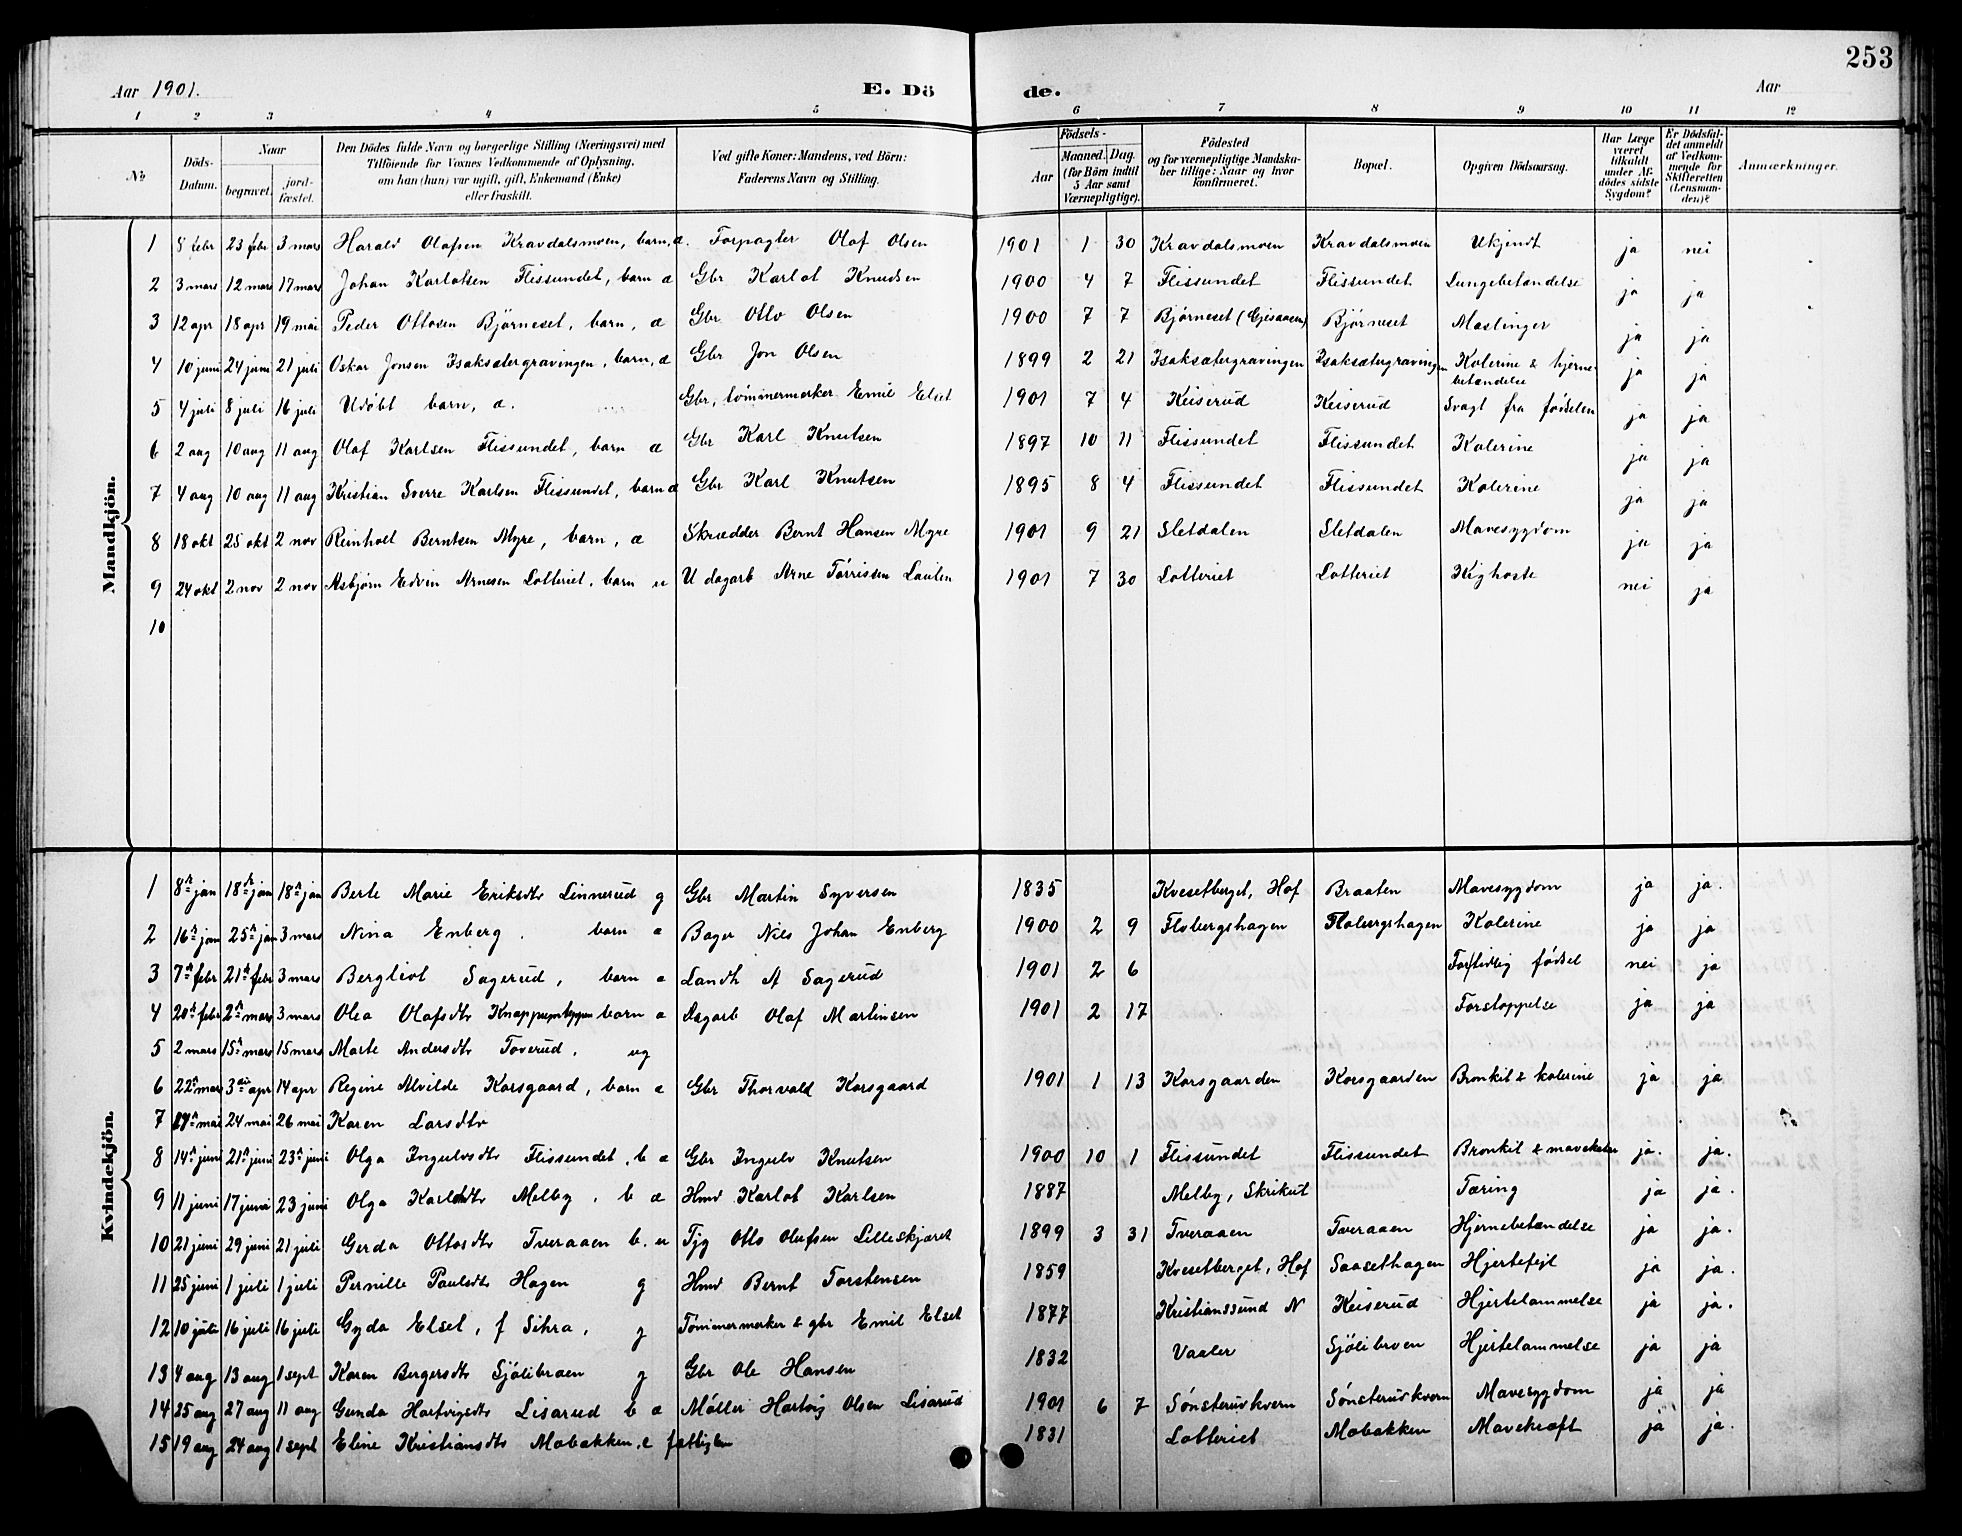 253
Aar 1901. E. Dö de. Aar
1 2 3 4 5 6 7 8 9 10 11 12
No Döds-Datum. Naar begravet. jord-fæstet. Den Dödes fulde Navn og borgerlige Stilling (Næringsvei) med Tilföiende for Voxnes Vedkommende af Oplysning, om han (hun) var ugift, gift, Enkemand (Enke) eller fraskilt. Ved gifte Koner: Mandens, ved Börn: Faderens Navn og Stilling. Födsels- Aar Maaned. Dag. (for Börn indtil 5 Aar samt Værnepligtige). Födested og for værnepligtige Mandskaber tillige: Naar og hvor konfirmeret. Bopæl. Opgiven Dödsaarsag. Har Læge været tilkaldt under Afdödes sidste Sygdom? Er Dödsfaldet anmeldt af Vedkommende for Skifteretten (Lensmanden)? Anmærkninger.
Mandkjön.
1 8 febr 23 febr 3 mars Harald Olafsen Kravdalsmoen, barn, æ. Forpagter Olaf Olsen 1901 1 30 Kravdalsmoen Kravdalsmoen Ukjendt ja nei
2 3 mars 12 mars 17 mars Johan Karlotsen Flissundet, barn æ Gbr Karlot Knudsen 1900 4 7 Flissundet Flissundet Lungebetændelse ja ja
3 12 apr 18 apr 19 mai Peder Ottosen Bjørneset, barn, æ Gbr Otto Olsen 1900 7 7 Bjørneset (Gjesaaen) Bjørneset Mæslinger ja ja
4 10 juni 24 juni 21 juli Oskar Jonsen Isaksætergravingen, barn, æ Gbr Jon Olsen 1899 2 21 Isaksætergravingen Isaksætergravingen Kolerine & hjernebetændelse ja ja
5 4 juli 8 juli 16 juli Udøbt barn, æ. Gbr, tømmermerker Emil Elset 1901 7 4 Keiserud Keiserud Svagt fra fødselen ja ja
6 2 aug 10 aug 11 aug Olaf Karlsen Flissundet, barn æ Gbr Karl Knutsen 1897 10 11 Flissundet Flissundet Kolerine ja ja
7 4 aug 10 aug 11 aug Kristian Sverre Karlsen Flissundet, barn æ Gbr Karl Knutsen 1895 8 4 Flissundet Flissundet Kolerine ja ja
8 18 okt 25 okt 2 nov Reinholt Berntsen Myre, barn, æ Skrædder Bernt Hansen Myre 1901 9 21 Sletdalen Sletdalen Mavesygdom ja ja
9 24 okt 2 nov 2 nov Asbjørn Edvin Arnesen Lotteriet, barn u U dagarb Arne Tørrissen Lauten 1901 7 30 Lotteriet Lotteriet Kighoste nei ja
10
Kvindekjön.
1 8de jan 18de jan 18de jan Berte Marie Eriksdtr Linnerud g Gbr Martin Syversen 1835 Kvesetberget, Hof Braaten Mavesygdom ja ja.
2 16de jan 25de jan 3 mars Nina Enberg. barn æ Bager Nils Johan Enberg 1900 2 9 Flobergshagen Flobergshagen Kolerine ja ja
3 7de febr 21de febr 3 mars Bergliot Sagerud, barn æ Landh A Sagerud 1901 2 6 Fortidlig fødsel nei ja
4 20de febr 2den mars 3 mars Olea Olafsdtr barn æ Dagarb Olaf Martinsen 1901 2 17 Forstoppelse ja ja
5 2 mars 15de mars 15 mars Marte Andersdtr Toverud. ug
6 22de mars 3die apr 14 apr Regine Alvilde Korsgaard, barn æ Gbr Thorvald Korsgaard 1901 1 13 Korsgaarden Korsgaarden Bronkit & kolerine ja ja
7 17de mai 24 mai 26 mai Karen Larsdtr
8 14de juni 21de juni 23de juni Olga Ingulvsdtr Flissundet, b æ Gbr Ingulv Knutsen 1900 10 1 Flissundet Flissundet Bronkit & mavekatar ja. ja.
9 11 juni 17 juni 23 juni Olga Karlsdtr Melby, b æ Hmd Karlot Karlsen 1887 Melby, Skrikut Tæring ja ja.
10 21 juni 29 juni 21 juli Gerda Ottosdtr Tveraaen b. u Tjg Otto Olufsen Lilleskjæret 1899 3 31 Tveraaen Tveraaen Hjernebetændelse ja ja.
11 25 juni 1 juli 1 juli Pernille Paulsdtr Hagen g Hmd Bernt Torstensen 1859 Kvesetberget, Hof Saasethagen Hjertefejl ja ja.
12 10 juli 16 juli 16 juli Gyda Elset, f Sihra, g Tømmermerker & gbr Emil Elset 1877 Kristianssund N Keiserud Hjertelammelse ja ja.
13 4 aug 13 aug 1 sept Karen Bergersdtr Sjølibraen g Gbr Ole Hansen 1832 Vaaler Sjølibroen Hjertelammelse ja ja
14 25 aug 27 aug 11 aug Gunda Hartvigsdtr Lisarud b æ Møller Hartvig Olsen Lisarud 1901 6 7 Sønsterudkvern Sønsterudkvern Mavesygdom ja ja
15 19 aug 24 aug 1 sept Eline Kristiansdtr Mobakken, e fattiglem 1831 Lotteriet Mobakken Mavekræft ja ja.